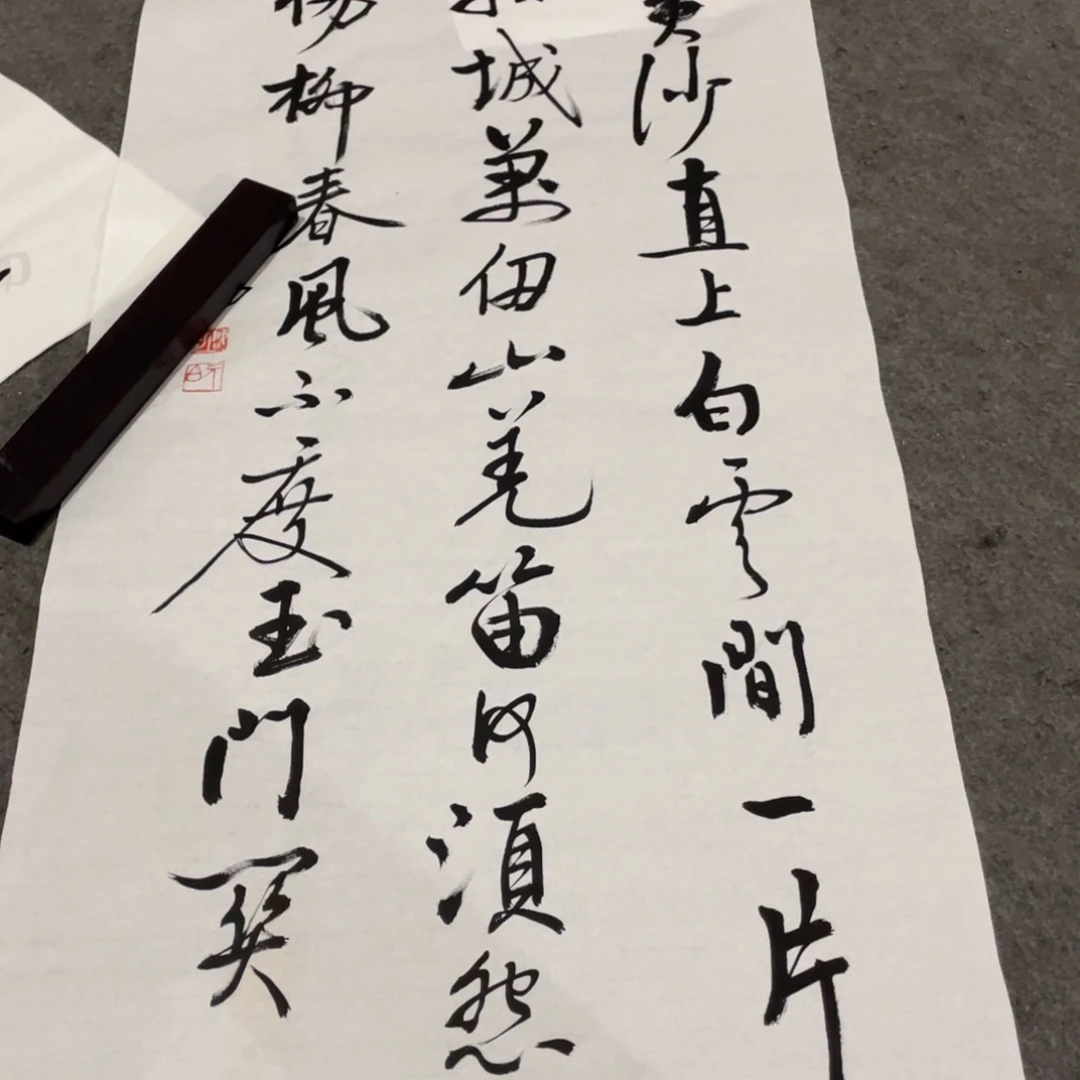 黄沙直上白雲間一片
城萬仞山羌笛何須怨
楊柳春風不度玉門關